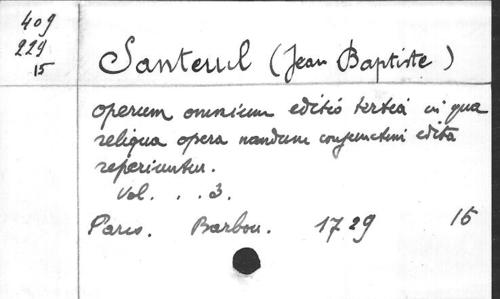 409
229
15
Santeuil (Jean Baptiste)
operum omnium editio tertia in qua
reliqua opera nondum conjunctim edita
reperiuntur.
Vol. . . 3.
Paris. Barbou. 1729 15